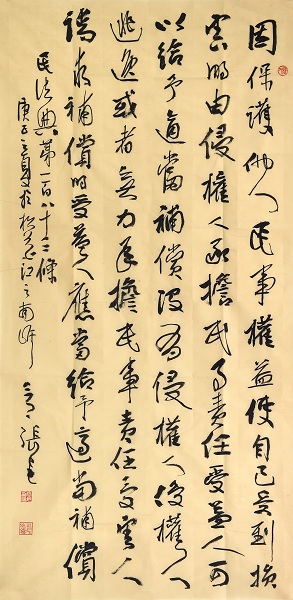 因保護他人民事權益使自己受到損
害的由侵權人承擔民事責任受益人可
以給予適當補償沒有侵權人侵權人
逃逸或者無力承擔民事責任受害人
請求補償的受益人應當給予適當補償
民法典第一百八十三條
庚子之夏於松花江之南岸 張